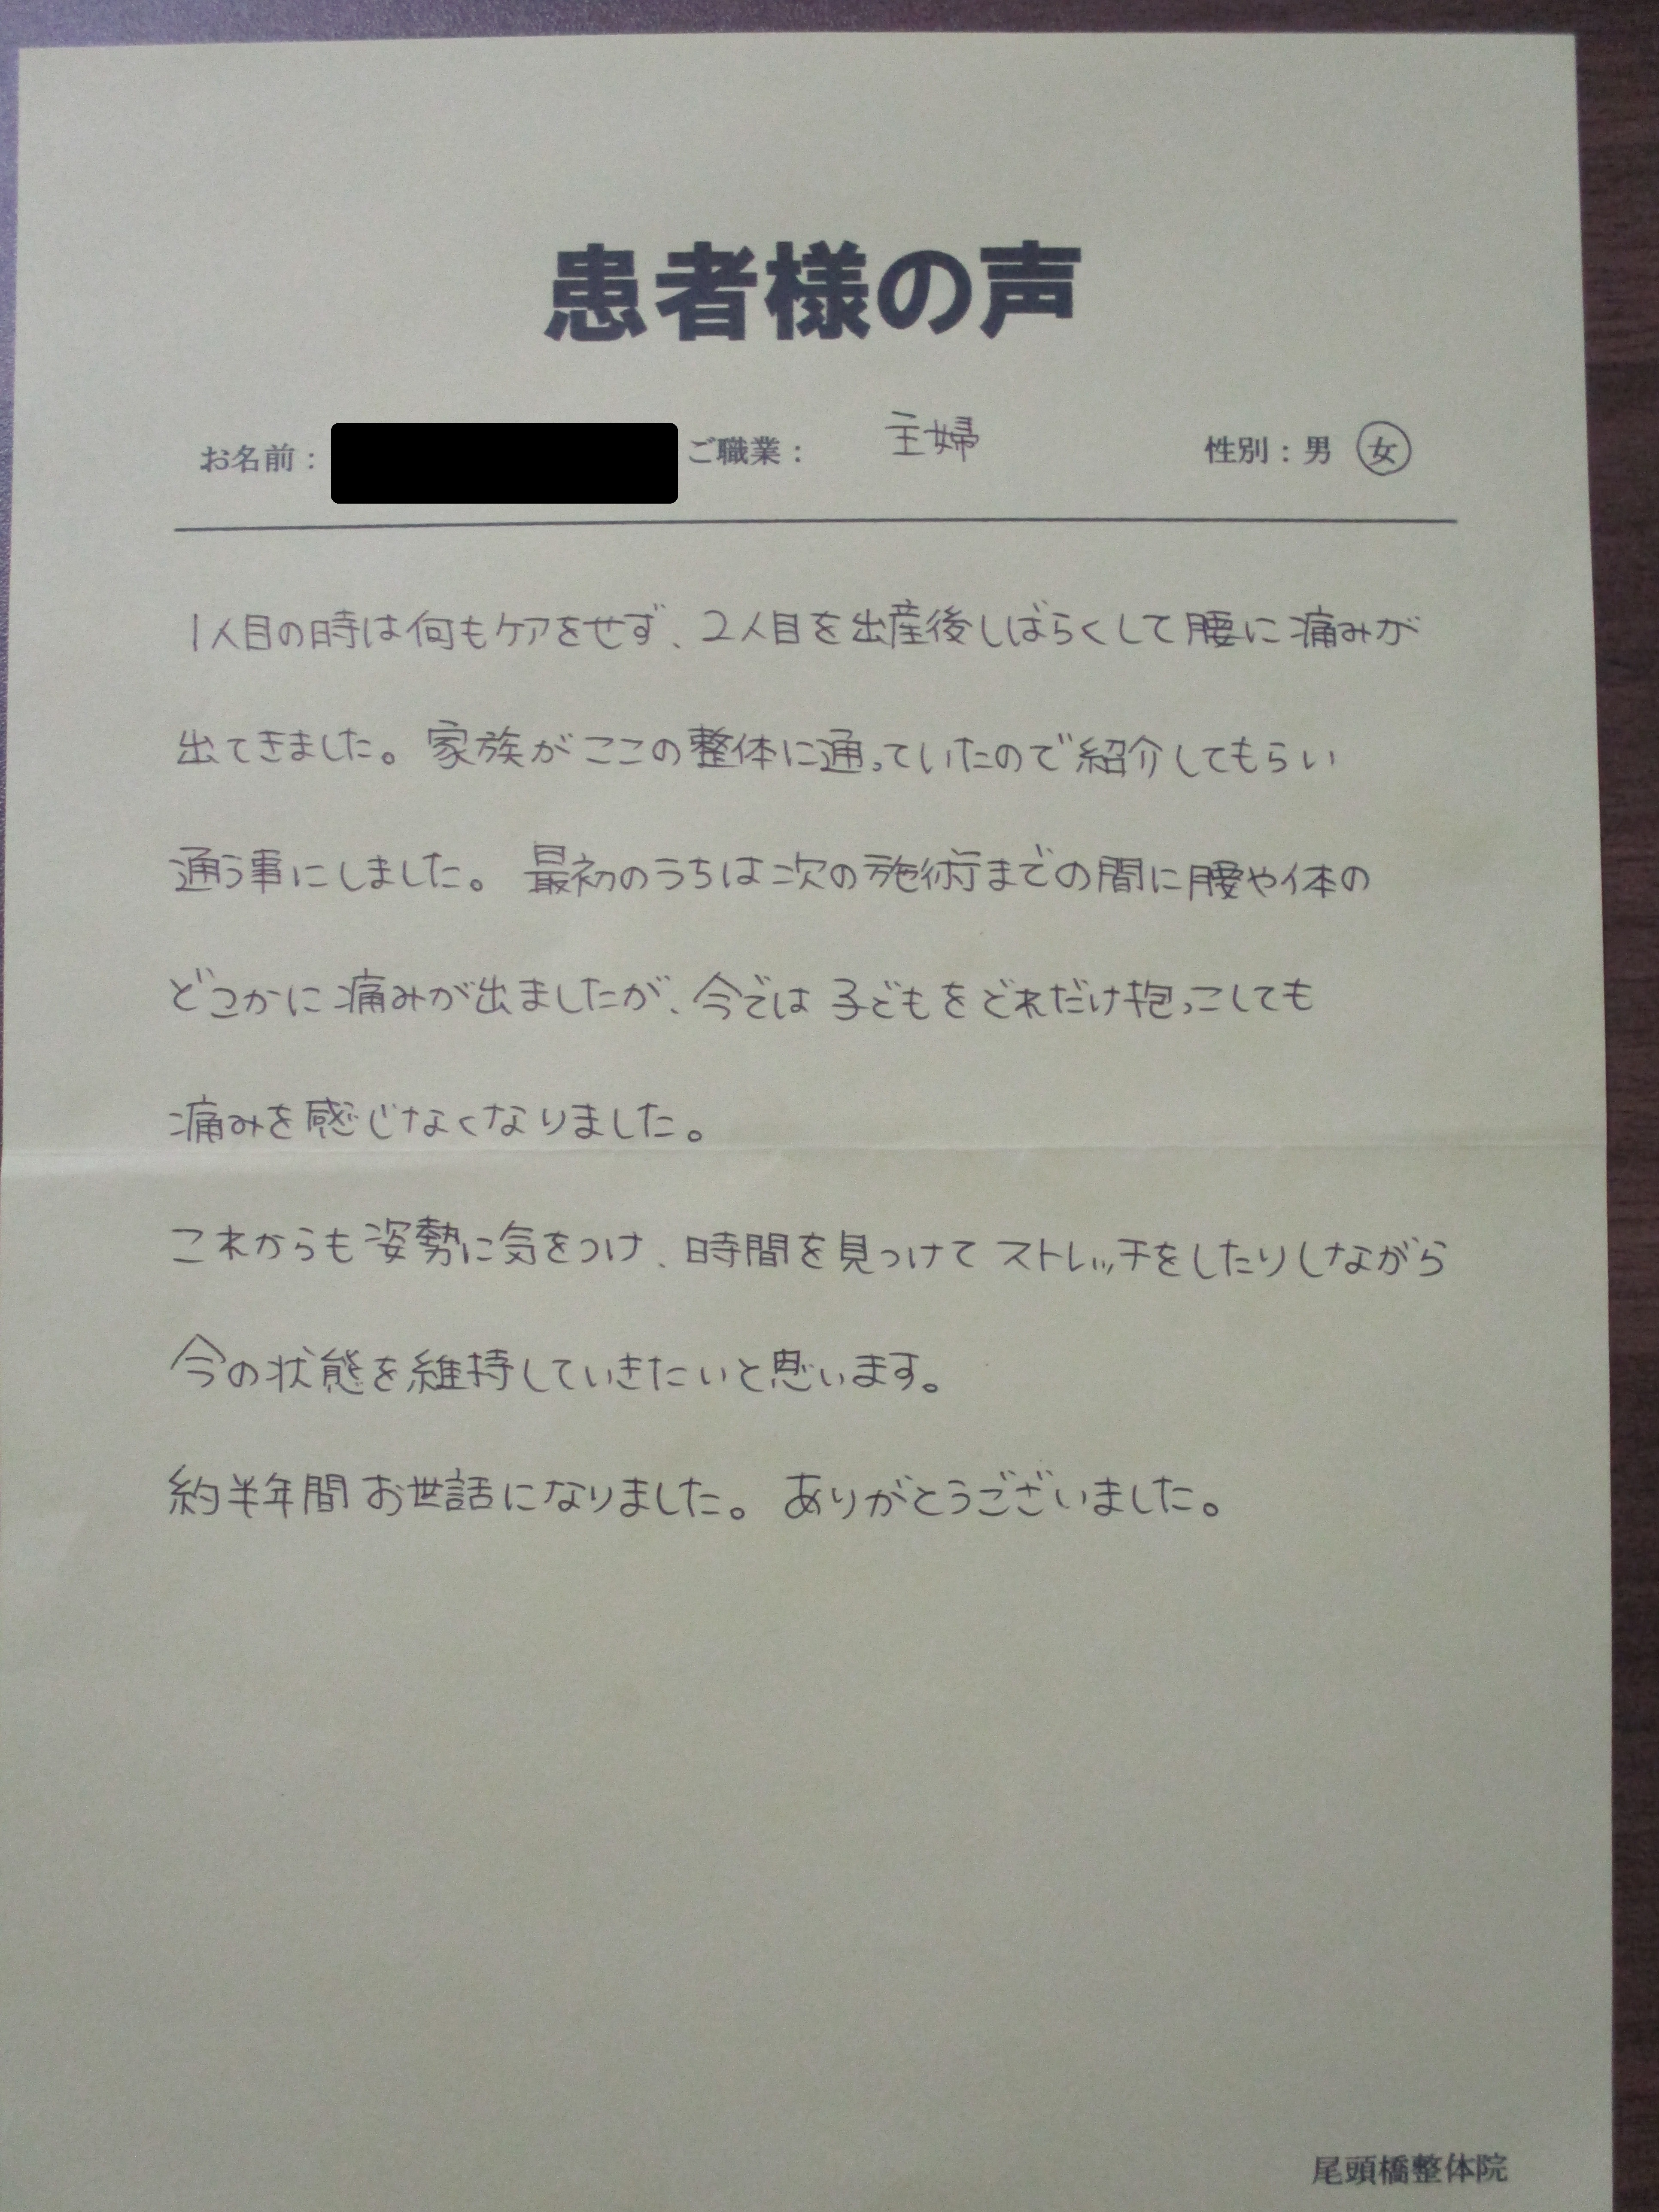 患者様の声
お名前： ご職業： 主婦 性別：男 女
1人目の時は何もケアをせず、2人目を出産後しばらくして腰に痛みが
出てきました。家族がここの整体に通っていたので紹介してもらい
通う事にしました。最初のうちは次の施術までの間に腰や体の
どこかに痛みが出ましたが、今では子どもをどれだけ抱っこしても
痛みを感じなくなりました。
これからも姿勢に気をつけ、時間を見つけてストレッチをしたりしながら
今の状態を維持していきたいと思います。
約半年間お世話になりました。ありがとうございました。
尾頭橋整体院